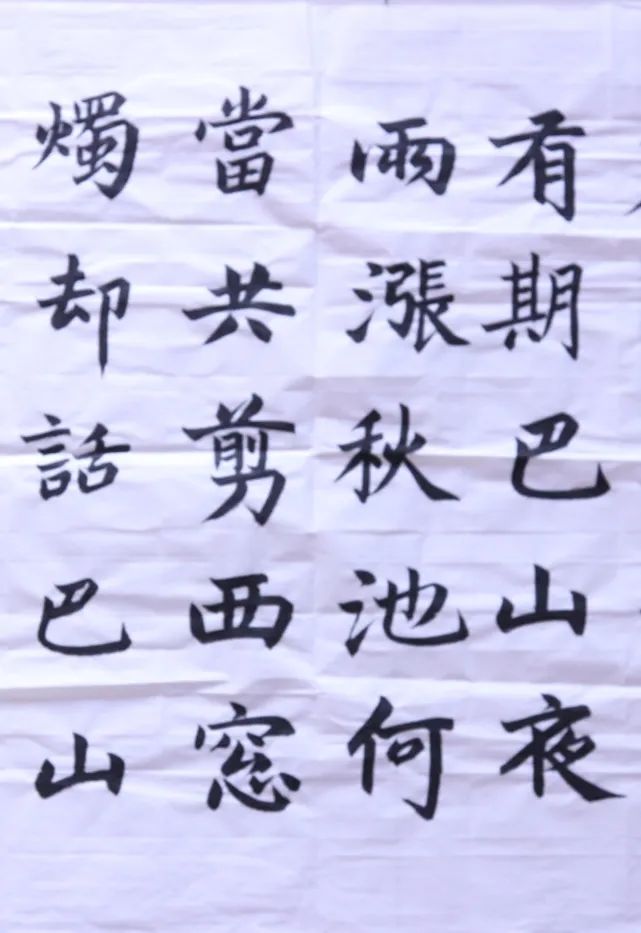 有期巴山夜
雨漲秋池何
當共剪西窓
燭却話巴山